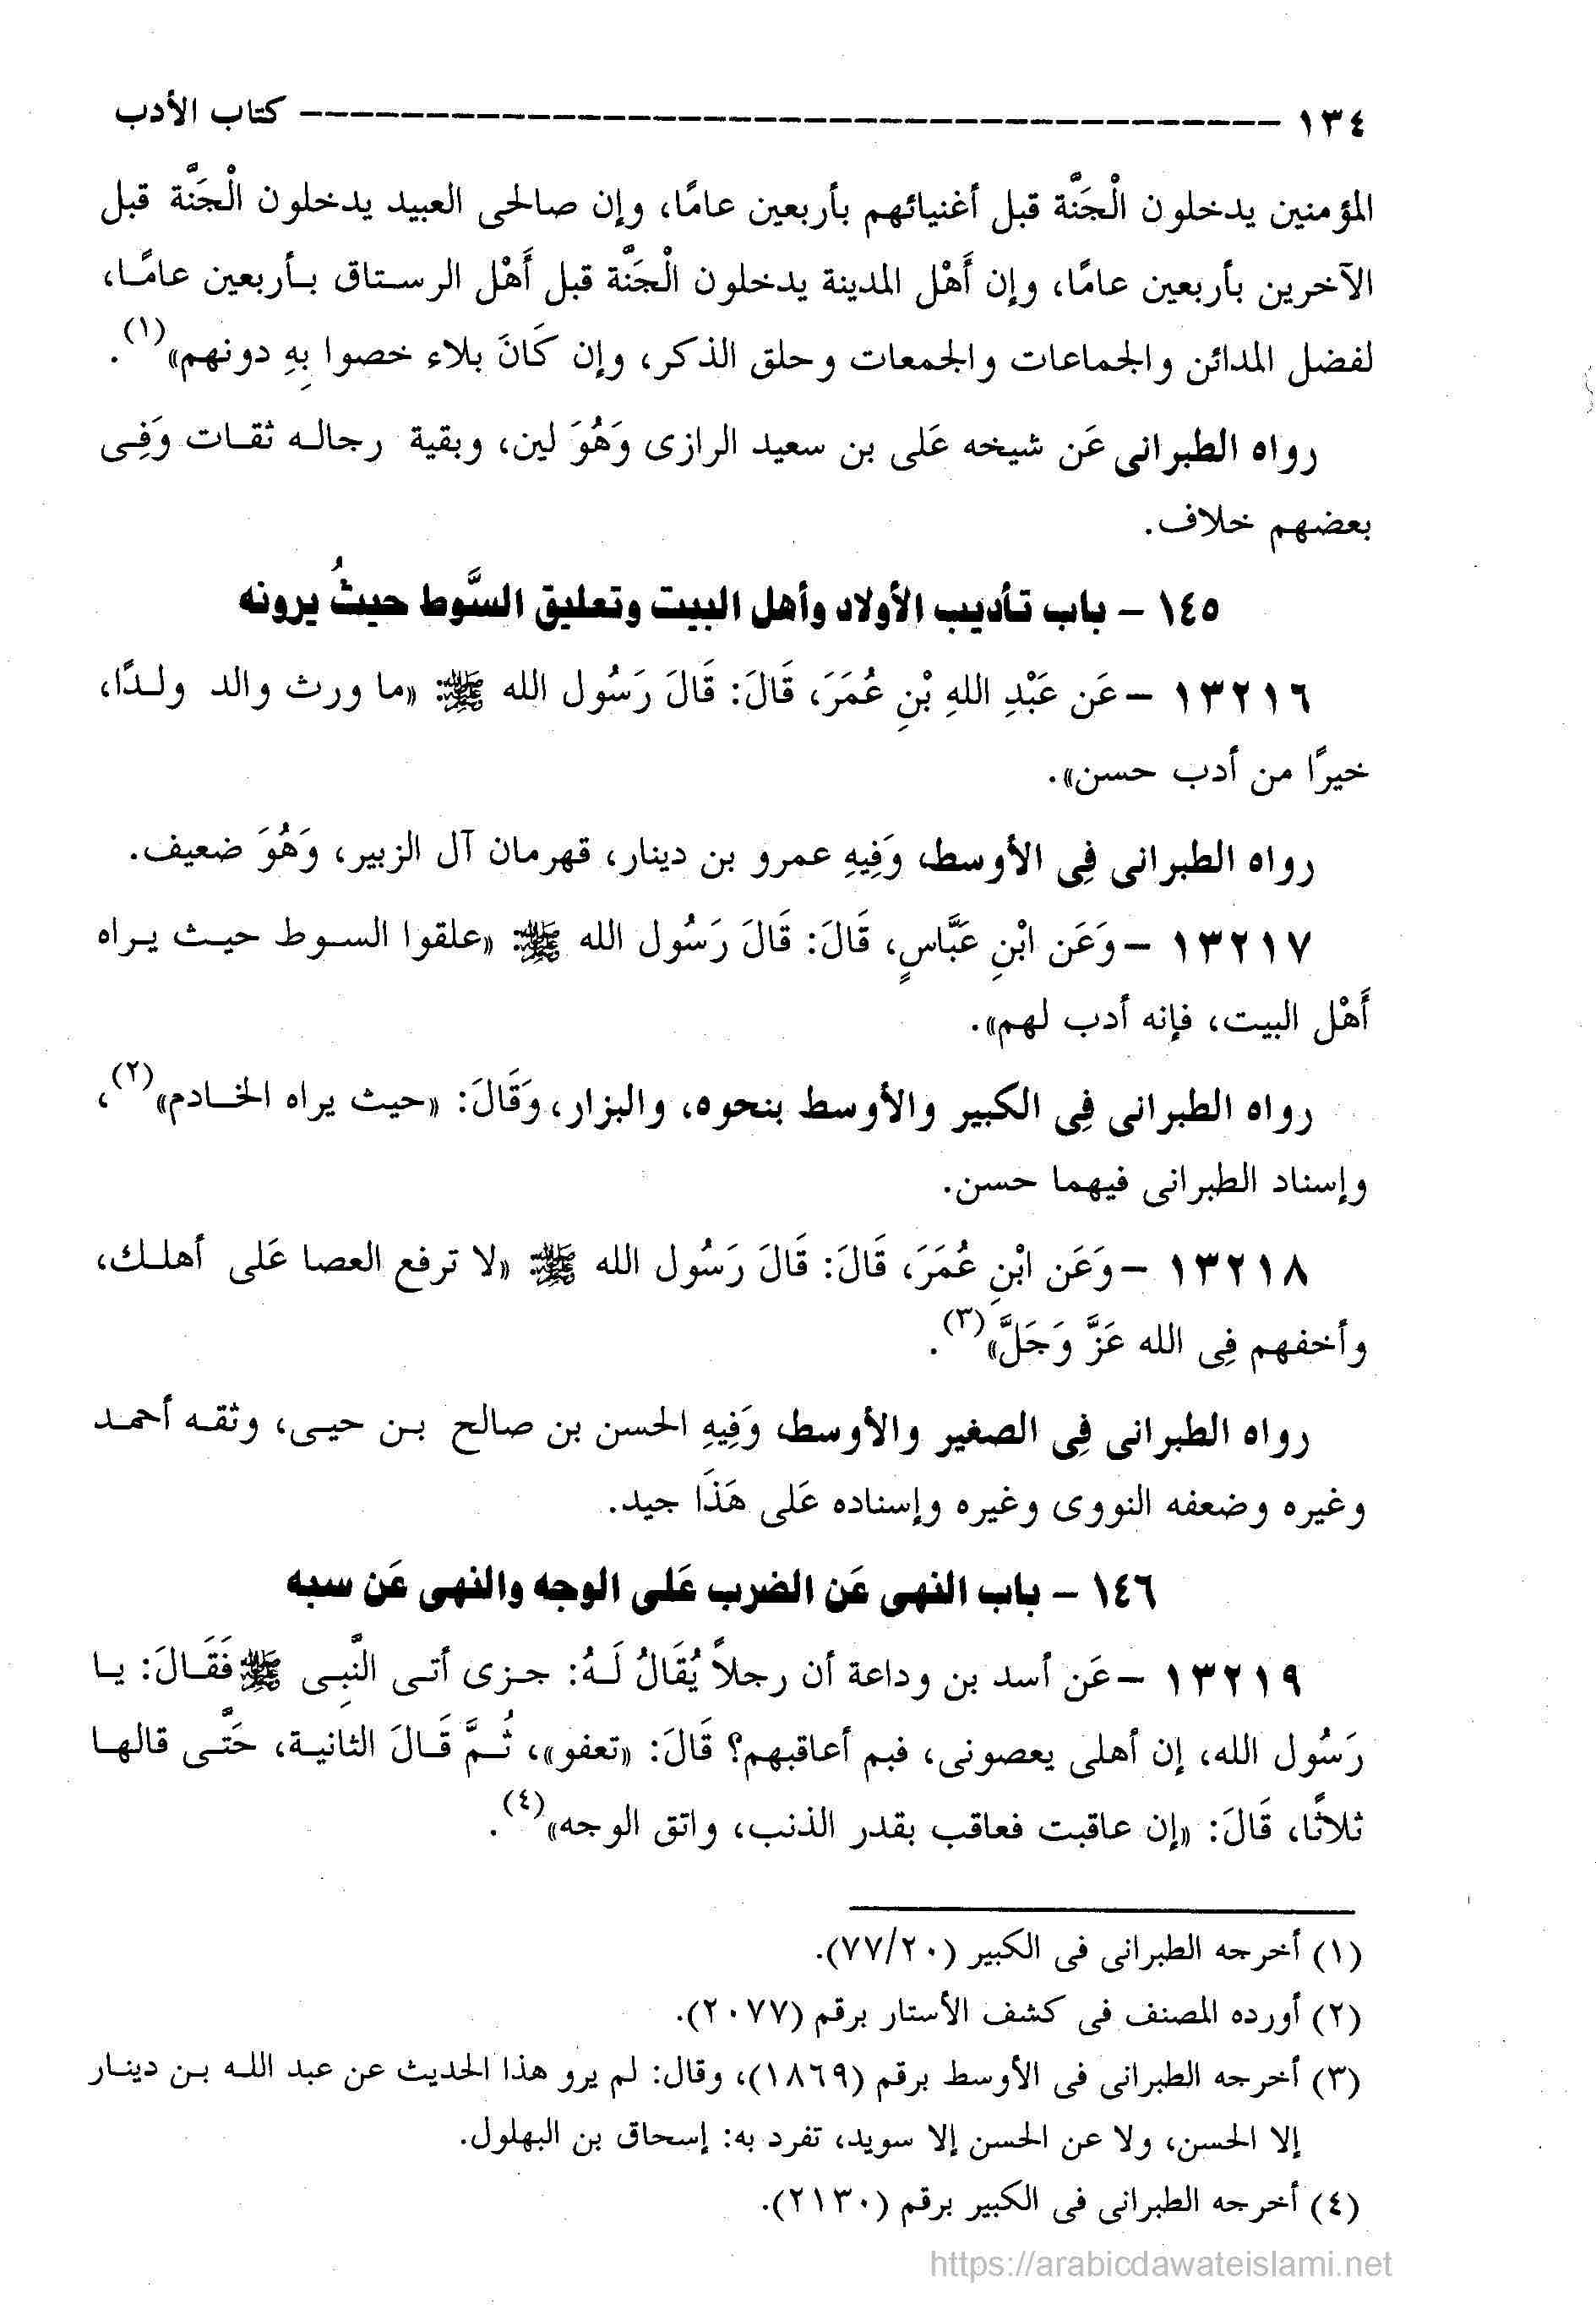 ١٣٤ ---------------------------------------- كتاب الأدب
المؤمنين يدخلون الْجَنَّة قبل أغنيائهم بأربعين عامًا، وإن صالحى العبيد يدخلون الْجَنَّة قبل
الآخرين بأربعين عامًا، وإن أَهْل المدينة يدخلون الْجَنَّة قبل أَهْل الرستاق بأربعين عامًا،
لفضل المدائن والجماعات والجمعات وحلق الذكر، وإن كَانَ بلاء خصوا بِهِ دونهم»(١).
رواه الطبرانى عَن شيخه عَلى بن سعيد الرازى وَهُوَ لين، وبقية رجاله ثقات وَفِى
بعضهم خلاف.
١٤٥ - باب تأديب الأولاد وأهل البيت وتعليق السَّوط حيثُ يرونه
١٣٢١٦ - عَن عَبْدِ اللهِ بْنِ عُمَرَ، قَالَ: قَالَ رَسُول الله ﷺ: «ما ورث والد ولدًا،
خيرًا من أدب حسن».
رواه الطبرانى فِى الأوسط، وَفِيهِ عمرو بن دينار، قهرمان آل الزبير، وَهُوَ ضعيف.
١٣٢١٧ - وَعَن ابْنِ عَبَّاسٍ، قَالَ: قَالَ رَسُول الله ﷺ: «علقوا السوط حيث يراه
أَهْل البيت، فإنه أدب لهم».
رواه الطبرانى فِى الكبير والأوسط بنحوه، والبزار، وَقَالَ: «حيث يراه الخادم»(٢)،
وإسناد الطبرانى فيهما حسن.
١٣٢١٨ - وَعَن ابْنِ عُمَرَ، قَالَ: قَالَ رَسُول الله ﷺ: «لا ترفع العصا عَلى أهلك،
وأخفهم فِى الله عَزَّ وَجَلَّ»(٣).
رواه الطبرانى فِى الصغير والأوسط، وَفِيهِ الحسن بن صالح بن حيى، وثقه أحمد
وغيره وضعفه النووى وغيره وإسناده عَلى هَذَا جيد.
١٤٦ - باب النهى عَن الضرب عَلى الوجه والنهى عَن سبه
١٣٢١٩ - عَن أسد بن وداعة أن رجلاً يُقَالُ لَهُ: جزى أتى النَّبِى ﷺ فَقَالَ: يا
رَسُول الله، إن أهلى يعصونى، فبم أعاقبهم؟ قَالَ: «تعفو»، ثُمَّ قَالَ الثانية، حَتَّى قالها
ثلاثًا، قَالَ: «إن عاقبت فعاقب بقدر الذنب، واتق الوجه»(٤).
(١) أخرجه الطبرانى فى الكبير (٧٧/٢٠).
(٢) أورده المصنف فى كشف الأستار برقم (٢٠٧٧).
(٣) أخرجه الطبرانى فى الأوسط برقم (١٨٦٩)، وقال: لم يرو هذا الحديث عن عبد الله بن دينار
إلا الحسن، ولا عن الحسن إلا سويد، تفرد به: إسحاق بن البهلول.
(٤) أخرجه الطبرانى فى الكبير برقم (٢١٣٠).
https://arabicdawateislami.net